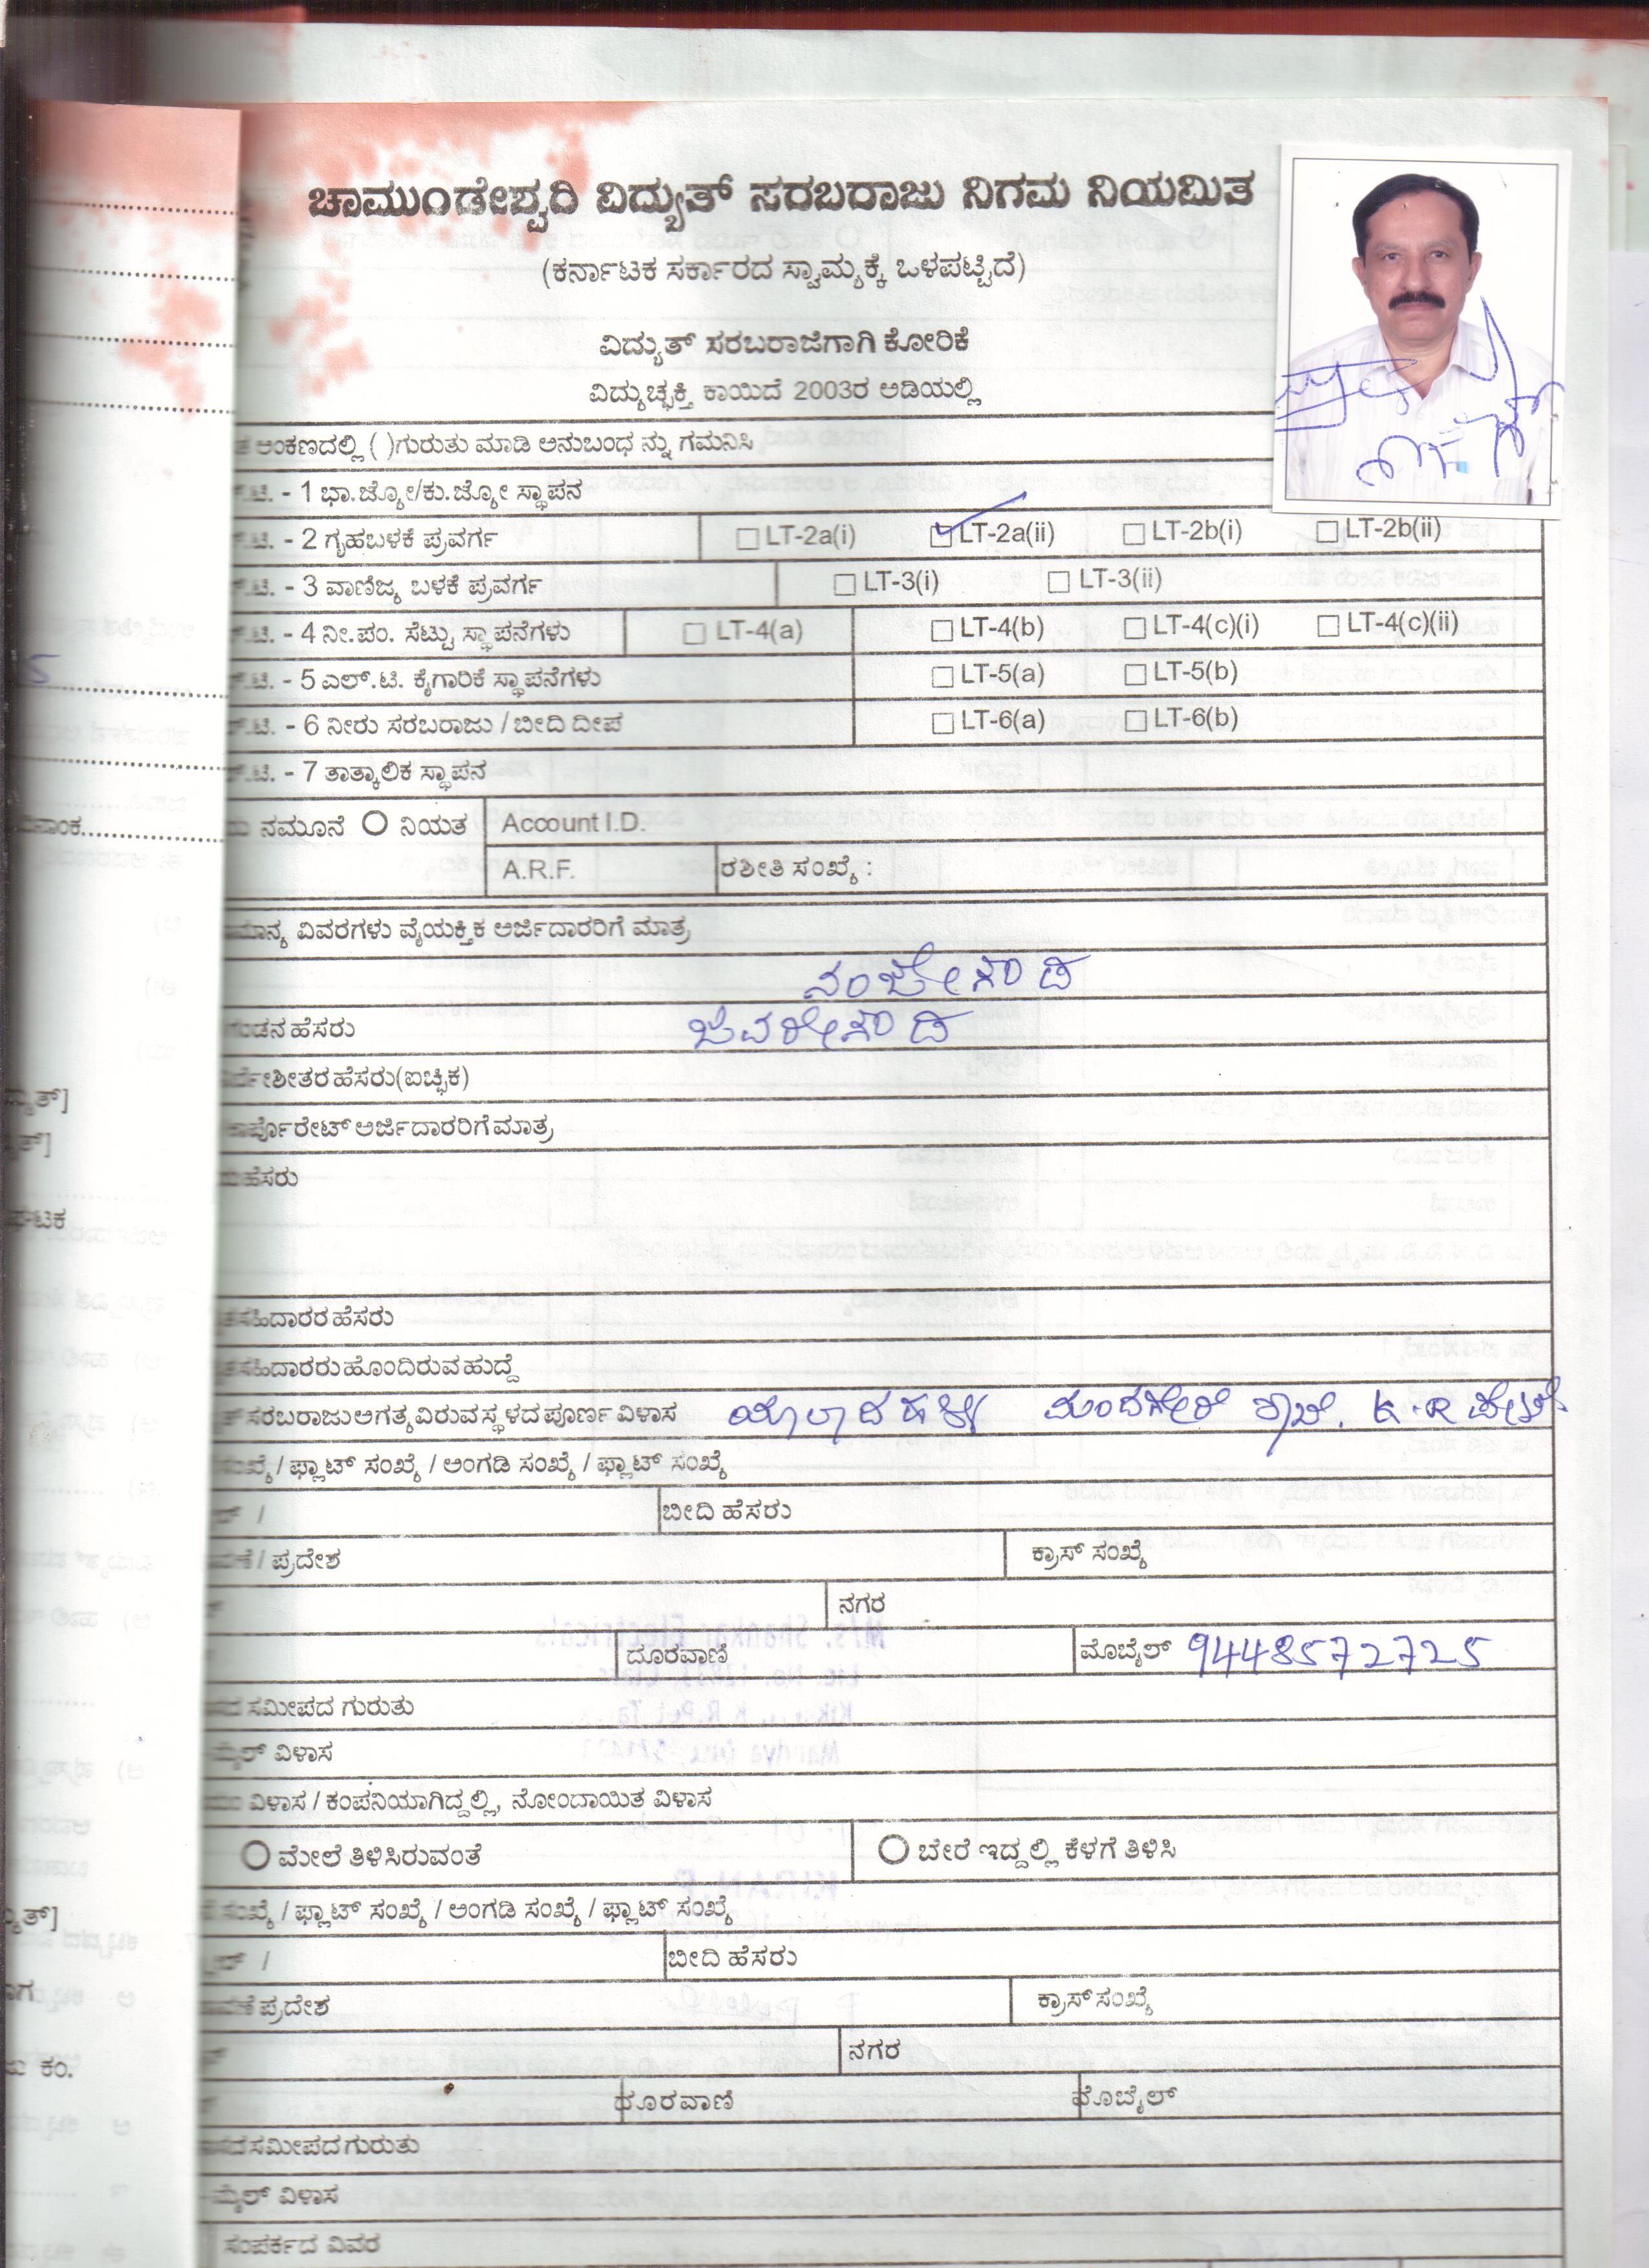 ಚಾಮುಂಡೇಶ್ವರಿ ವಿದ್ಯುತ್ ಸರಬರಾಜು ನಿಗಮ ನಿಯಮಿತ
(ಕರ್ನಾಟಕ ಸರ್ಕಾರದ ಸ್ವಾಮ್ಯಕ್ಕೆ ಒಳಪಟ್ಟಿದೆ)
ವಿದ್ಯುತ್ ಸರಬರಾಜಿಗಾಗಿ ಕೋರಿಕೆ
ವಿದ್ಯುಚ್ಛಕ್ತಿ ಕಾಯಿದೆ 2003ರ ಅಡಿಯಲ್ಲಿ
ಅಂಕಣದಲ್ಲಿ ( )ಗುರುತು ಮಾಡಿ ಅನುಬಂಧ ನ್ನು ಗಮನಿಸಿ
.ಟಿ. - 1 ಭಾ.ಜ್ಯೋ/ಕು.ಜ್ಯೋ ಸ್ಥಾಪನ
.ಟಿ. - 2 ಗೃಹಬಳಕೆ ಪ್ರವರ್ಗ LT-2a(i) LT-2a(ii) LT-2b(i) LT-2b(ii)
.ಟಿ. - 3 ವಾಣಿಜ್ಯ ಬಳಕೆ ಪ್ರವರ್ಗ LT-3(i) LT-3(ii)
.ಟಿ. - 4 ನೀ.ಪಂ. ಸೆಟ್ಟು ಸ್ಥಾಪನೆಗಳು LT-4(a) LT-4(b) LT-4(c)(i) LT-4(c)(ii)
.ಟಿ. - 5 ಎಲ್.ಟಿ. ಕೈಗಾರಿಕೆ ಸ್ಥಾಪನೆಗಳು LT-5(a) LT-5(b)
.ಟಿ. - 6 ನೀರು ಸರಬರಾಜು / ಬೀದಿ ದೀಪ LT-6(a) LT-6(b)
.ಟಿ. - 7 ತಾತ್ಕಾಲಿಕ ಸ್ಥಾಪನ
ನಮೂನೆ ನಿಯತ Account I.D.
A.R.F. ರಶೀತಿ ಸಂಖ್ಯೆ :
ವಿವರಗಳು ವೈಯಕ್ತಿಕ ಅರ್ಜಿದಾರರಿಗೆ ಮಾತ್ರ
ನಂಜೇಗೌಡ
ಹೆಸರು ಜವರೇಗೌಡ
ಹೆಸರು(ಐಚ್ಛಿಕ)
ಅರ್ಜಿದಾರರಿಗೆ ಮಾತ್ರ
ಹೆಸರು
ಸಹಿದಾರರ ಹೆಸರು
ಸಹಿದಾರರು ಹೊಂದಿರುವ ಹುದ್ದೆ
ಸರಬರಾಜು ಅಗತ್ಯವಿರುವ ಸ್ಥಳದ ಪೂರ್ಣ ವಿಳಾಸ K.R ಪೇಟೆ
ಸಂಖ್ಯೆ / ಫ್ಲಾಟ್ ಸಂಖ್ಯೆ / ಅಂಗಡಿ ಸಂಖ್ಯೆ / ಫ್ಲಾಟ್ ಸಂಖ್ಯೆ
/ ಬೀದಿ ಹೆಸರು
/ ಪ್ರದೇಶ ಕ್ರಾಸ್ ಸಂಖ್ಯೆ
ನಗರ
ದೂರವಾಣಿ ಮೊಬೈಲ್ 9448572725
ಸಮೀಪದ ಗುರುತು
ವಿಳಾಸ
ವಿಳಾಸ / ಕಂಪನಿಯಾಗಿದ್ದಲ್ಲಿ, ನೋಂದಾಯಿತ ವಿಳಾಸ
ಮೇಲೆ ತಿಳಿಸಿರುವಂತೆ ಬೇರೆ ಇದ್ದಲ್ಲಿ ಕೆಳಗೆ ತಿಳಿಸಿ
ಸಂಖ್ಯೆ / ಫ್ಲಾಟ್ ಸಂಖ್ಯೆ / ಅಂಗಡಿ ಸಂಖ್ಯೆ / ಫ್ಲಾಟ್ ಸಂಖ್ಯೆ
/ ಬೀದಿ ಹೆಸರು
ಪ್ರದೇಶ ಕ್ರಾಸ್ ಸಂಖ್ಯೆ
ನಗರ
ದೂರವಾಣಿ ಮೊಬೈಲ್
ಸಮೀಪದ ಗುರುತು
ವಿಳಾಸ
ಸಂಪರ್ಕದ ವಿವರ